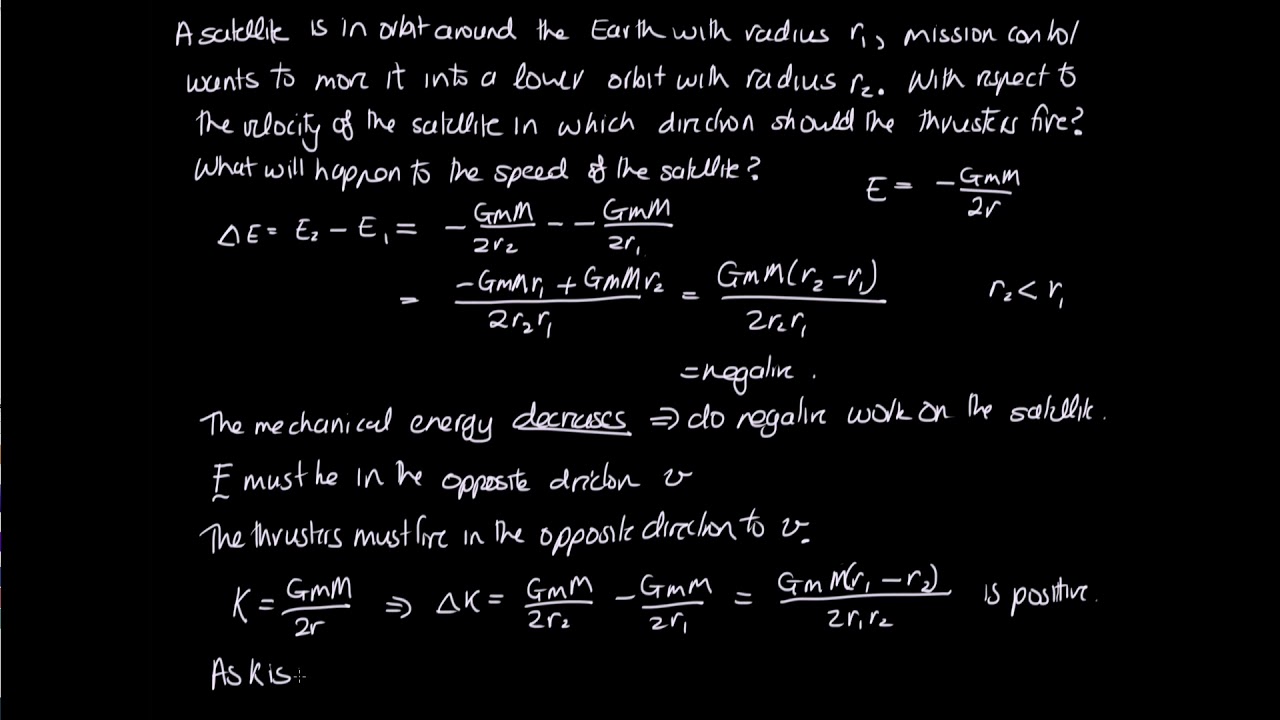 A satellite is in orbit around the Earth with radius r₁, mission control
wants to move it into a lower orbit with radius r₂. With respect to
the velocity of the satellite in which direction should the thrusters fire?
What will happen to the speed of the satellite?
E = -GmM/2r
ΔE = E₂ - E₁ = -GmM/2r₂ - - GmM/2r₁
= (-GmMr₁ + GmMr₂)/2r₂r₁ = GmM(r₂ - r₁)/2r₂r₁ r₂ < r₁
= negative.
The mechanical energy decreases ⇒ do negative work on the satellite.
F must be in the opposite direction v
The thrusters must fire in the opposite direction to v.
K = GmM/2r ⇒ ΔK = GmM/2r₂ - GmM/2r₁ = GmM(r₁ - r₂)/2r₁r₂ is positive.
As K is